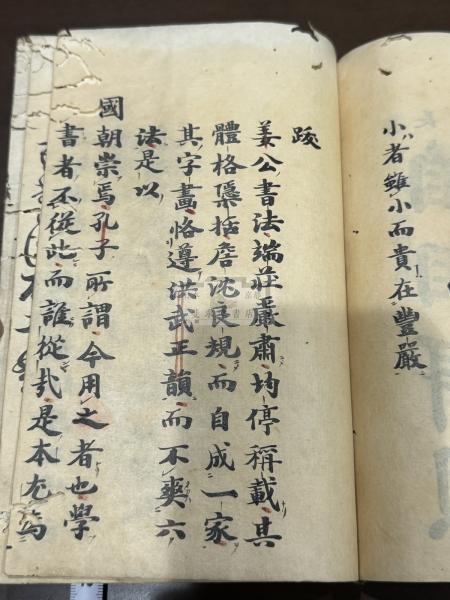 小者雖小而貴在豐嚴
跋
姜公書法端莊嚴肅均停稱載其
體格櫽括詹沈良規而自成一家
其字畫恪遵洪武正韻而不爽六
法是以
國朝崇焉孔子所謂今用之者也學
書者不從此而誰從哉是本尤為